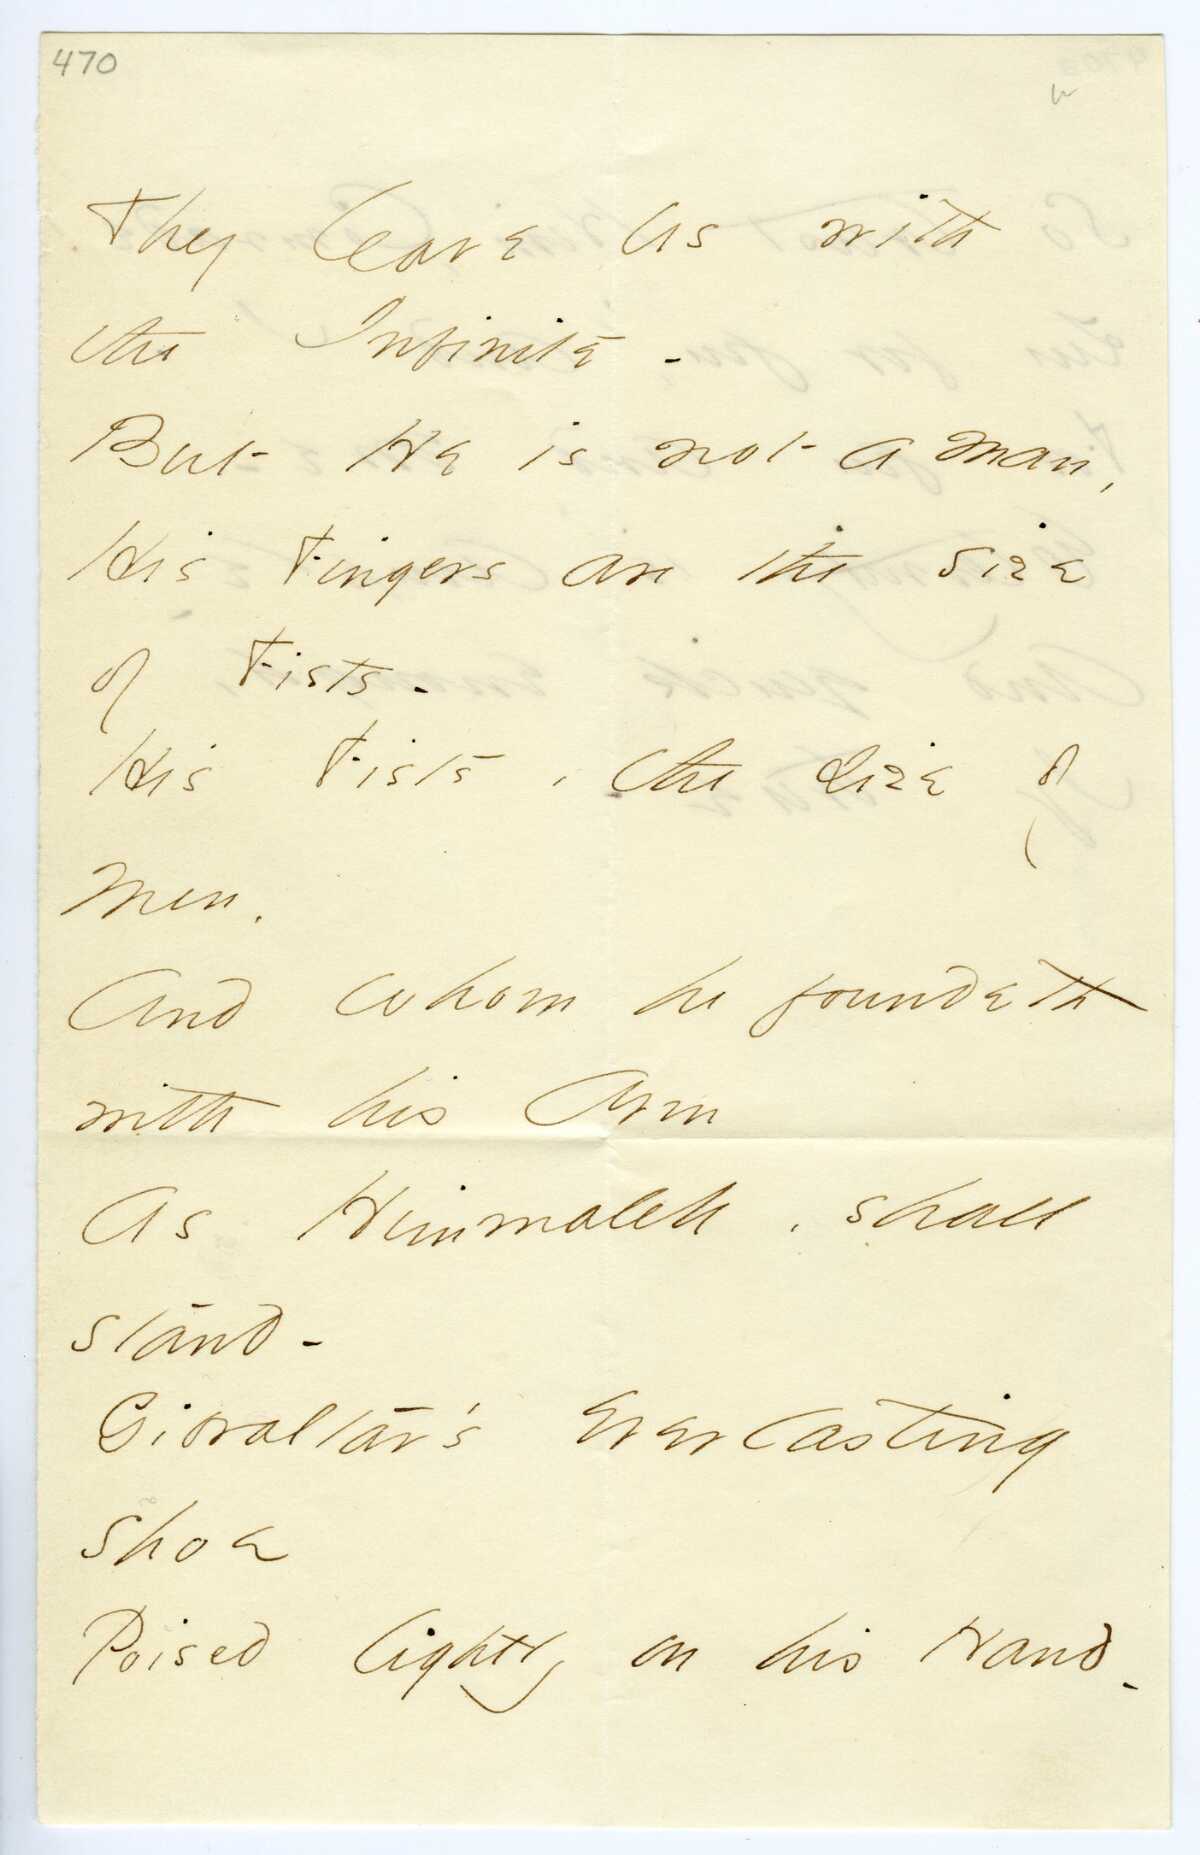 470
They leave us with
the Infinite -
But He is not a man,
His Fingers are the size
of Fists -
His Fists, the size of
men.
And whom he foundeth
with his Arm
As Himmaleh, shall
stand -
Gibraltar's Everlasting
Shoe
Poised lightly on his Hand -